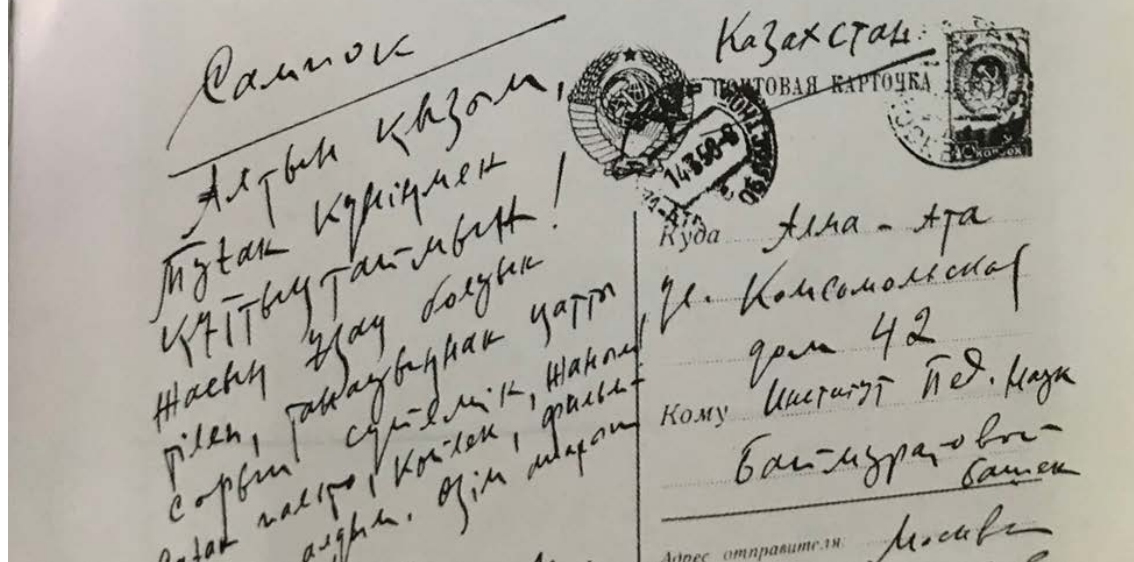 Сатток
Алтын қызым,
Туған күніңмен
құттықтаймын!
Жасың ұзақ болуын
тілеп, танауыңнан қатты
сорып сүйемін, жаным!
пальто, көйлек,
алдым. Өзім
Казахстан
ПОЧТОВАЯ КАРТОЧКА
14358-8
Куда Алма-Ата
ул. Комсомольская
дом 42
Кому Институт Пед. Наук
Баймуратовой
Адрес отправителя: Москва